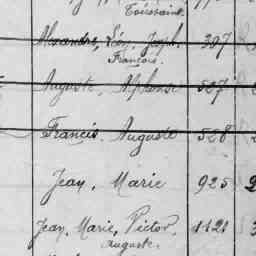 Toussaint.
Alexandre, Léon, Joseph. 397
François.
Auguste, Alphonse 527
Francis. Auguste 528
Jean, Marie 925
Jean, Marie, Victor, 1121
Auguste.